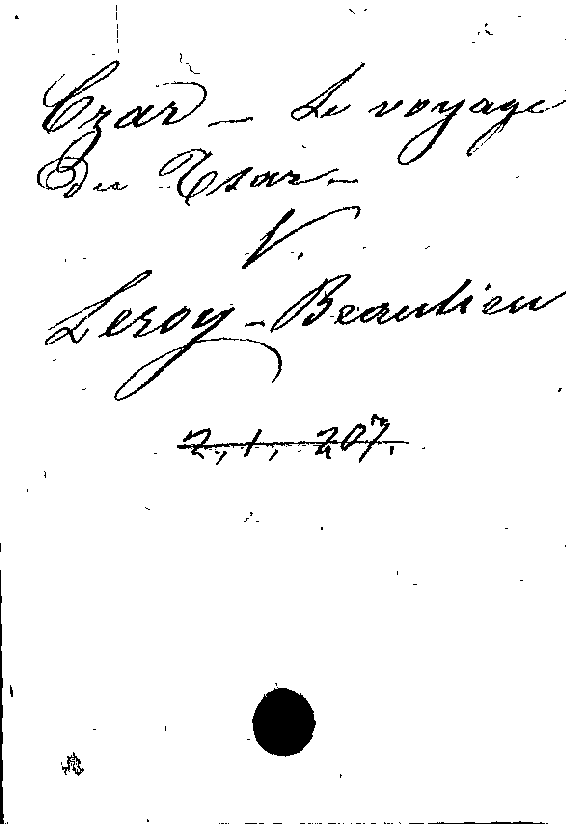 Czar - Le voyage
Du Tsar -
V.
Leroy-Beaulieu
2, 1, 207.